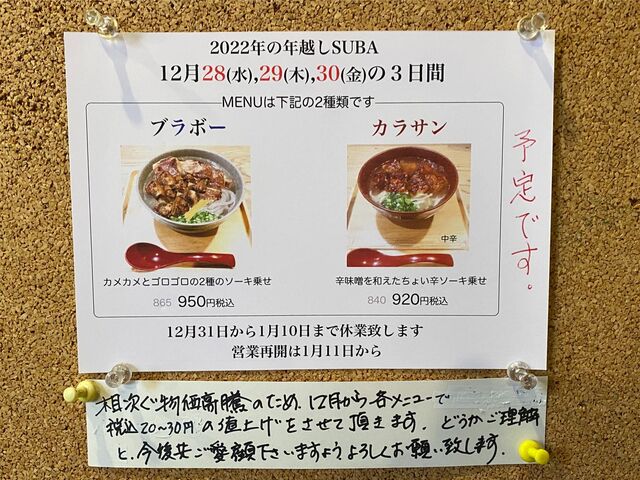 2022年の年越しSUBA
12月28(水),29(木),30(金)の3日間
MENUは下記の2種類です
ブラボー
カメカメとゴロゴロの2種のソーキ乗せ
865 950円税込
カラサン
中辛
辛味噌を和えたちょい辛ソーキ乗せ
840 920円税込
12月31日から1月10日まで休業致します
営業再開は1月11日から
予定です。
相次ぐ物価高騰のため、12月から各メニューで
税込20〜30円の値上げをさせて頂きます。どうかご理解
と、今後共ご愛顧下さいますようよろしくお願い致します。